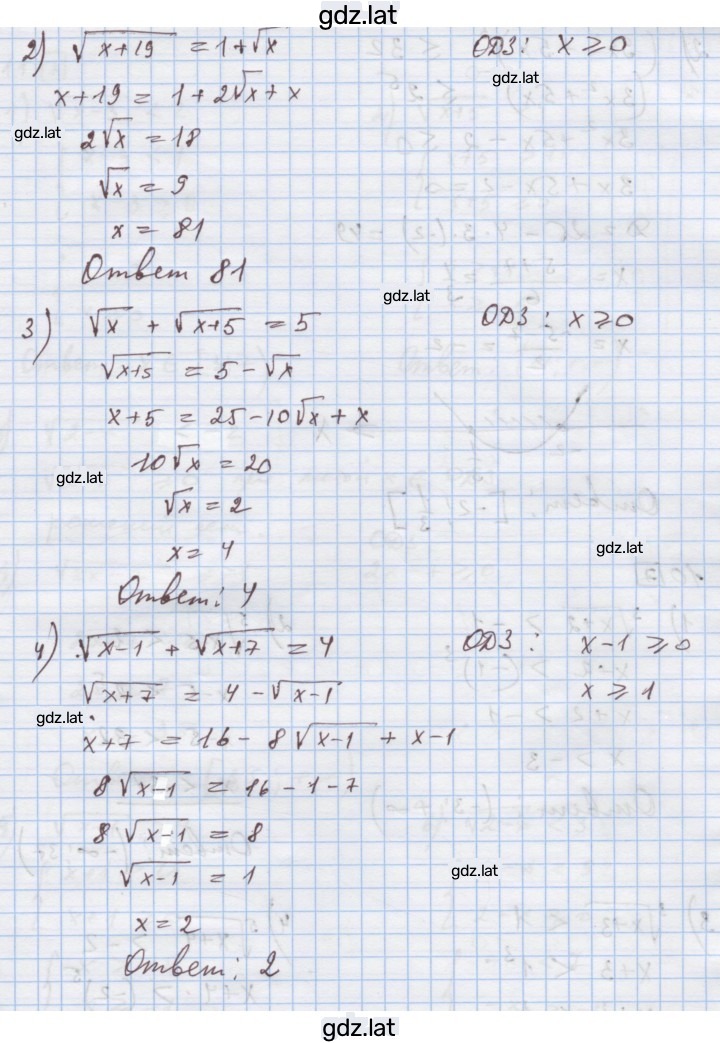 gdz.lat
2) √(x+19) = 1+√x ОДЗ: x ⩾ 0
gdz.lat
x+19 = 1+2√x+x
gdz.lat
2√x = 18
√x = 9
x = 81
Ответ 81
gdz.lat
3) √x + √(x+5) = 5 ОДЗ: x ⩾ 0
√(x+5) = 5 - √x
x+5 = 25-10√x + x
10√x = 20
gdz.lat
√x = 2
x = 4
gdz.lat
Ответ: 4
4) √(x-1) + √(x+7) = 4 ОДЗ: x-1 ⩾ 0
√(x+7) = 4 - √(x-1) x ⩾ 1
gdz.lat
x+7 = 16 - 8√(x-1) + x-1
8√(x-1) = 16-1-7
8√(x-1) = 8
√(x-1) = 1
gdz.lat
x = 2
Ответ: 2
gdz.lat